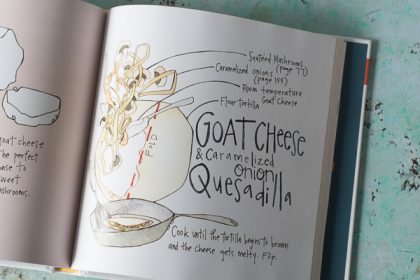 Sautéed Mushrooms
(page 77)
Caramelized onions
(page 155)
Room temperature
Goat Cheese
Flour tortilla
FOLD
GOAT CHEESE
& Caramelized
onion
Quesadilla
Cook until the tortilla begins to brown
and the cheese gets melty. Flip.
goat cheese
the perfect
base to
sweet
mushrooms.